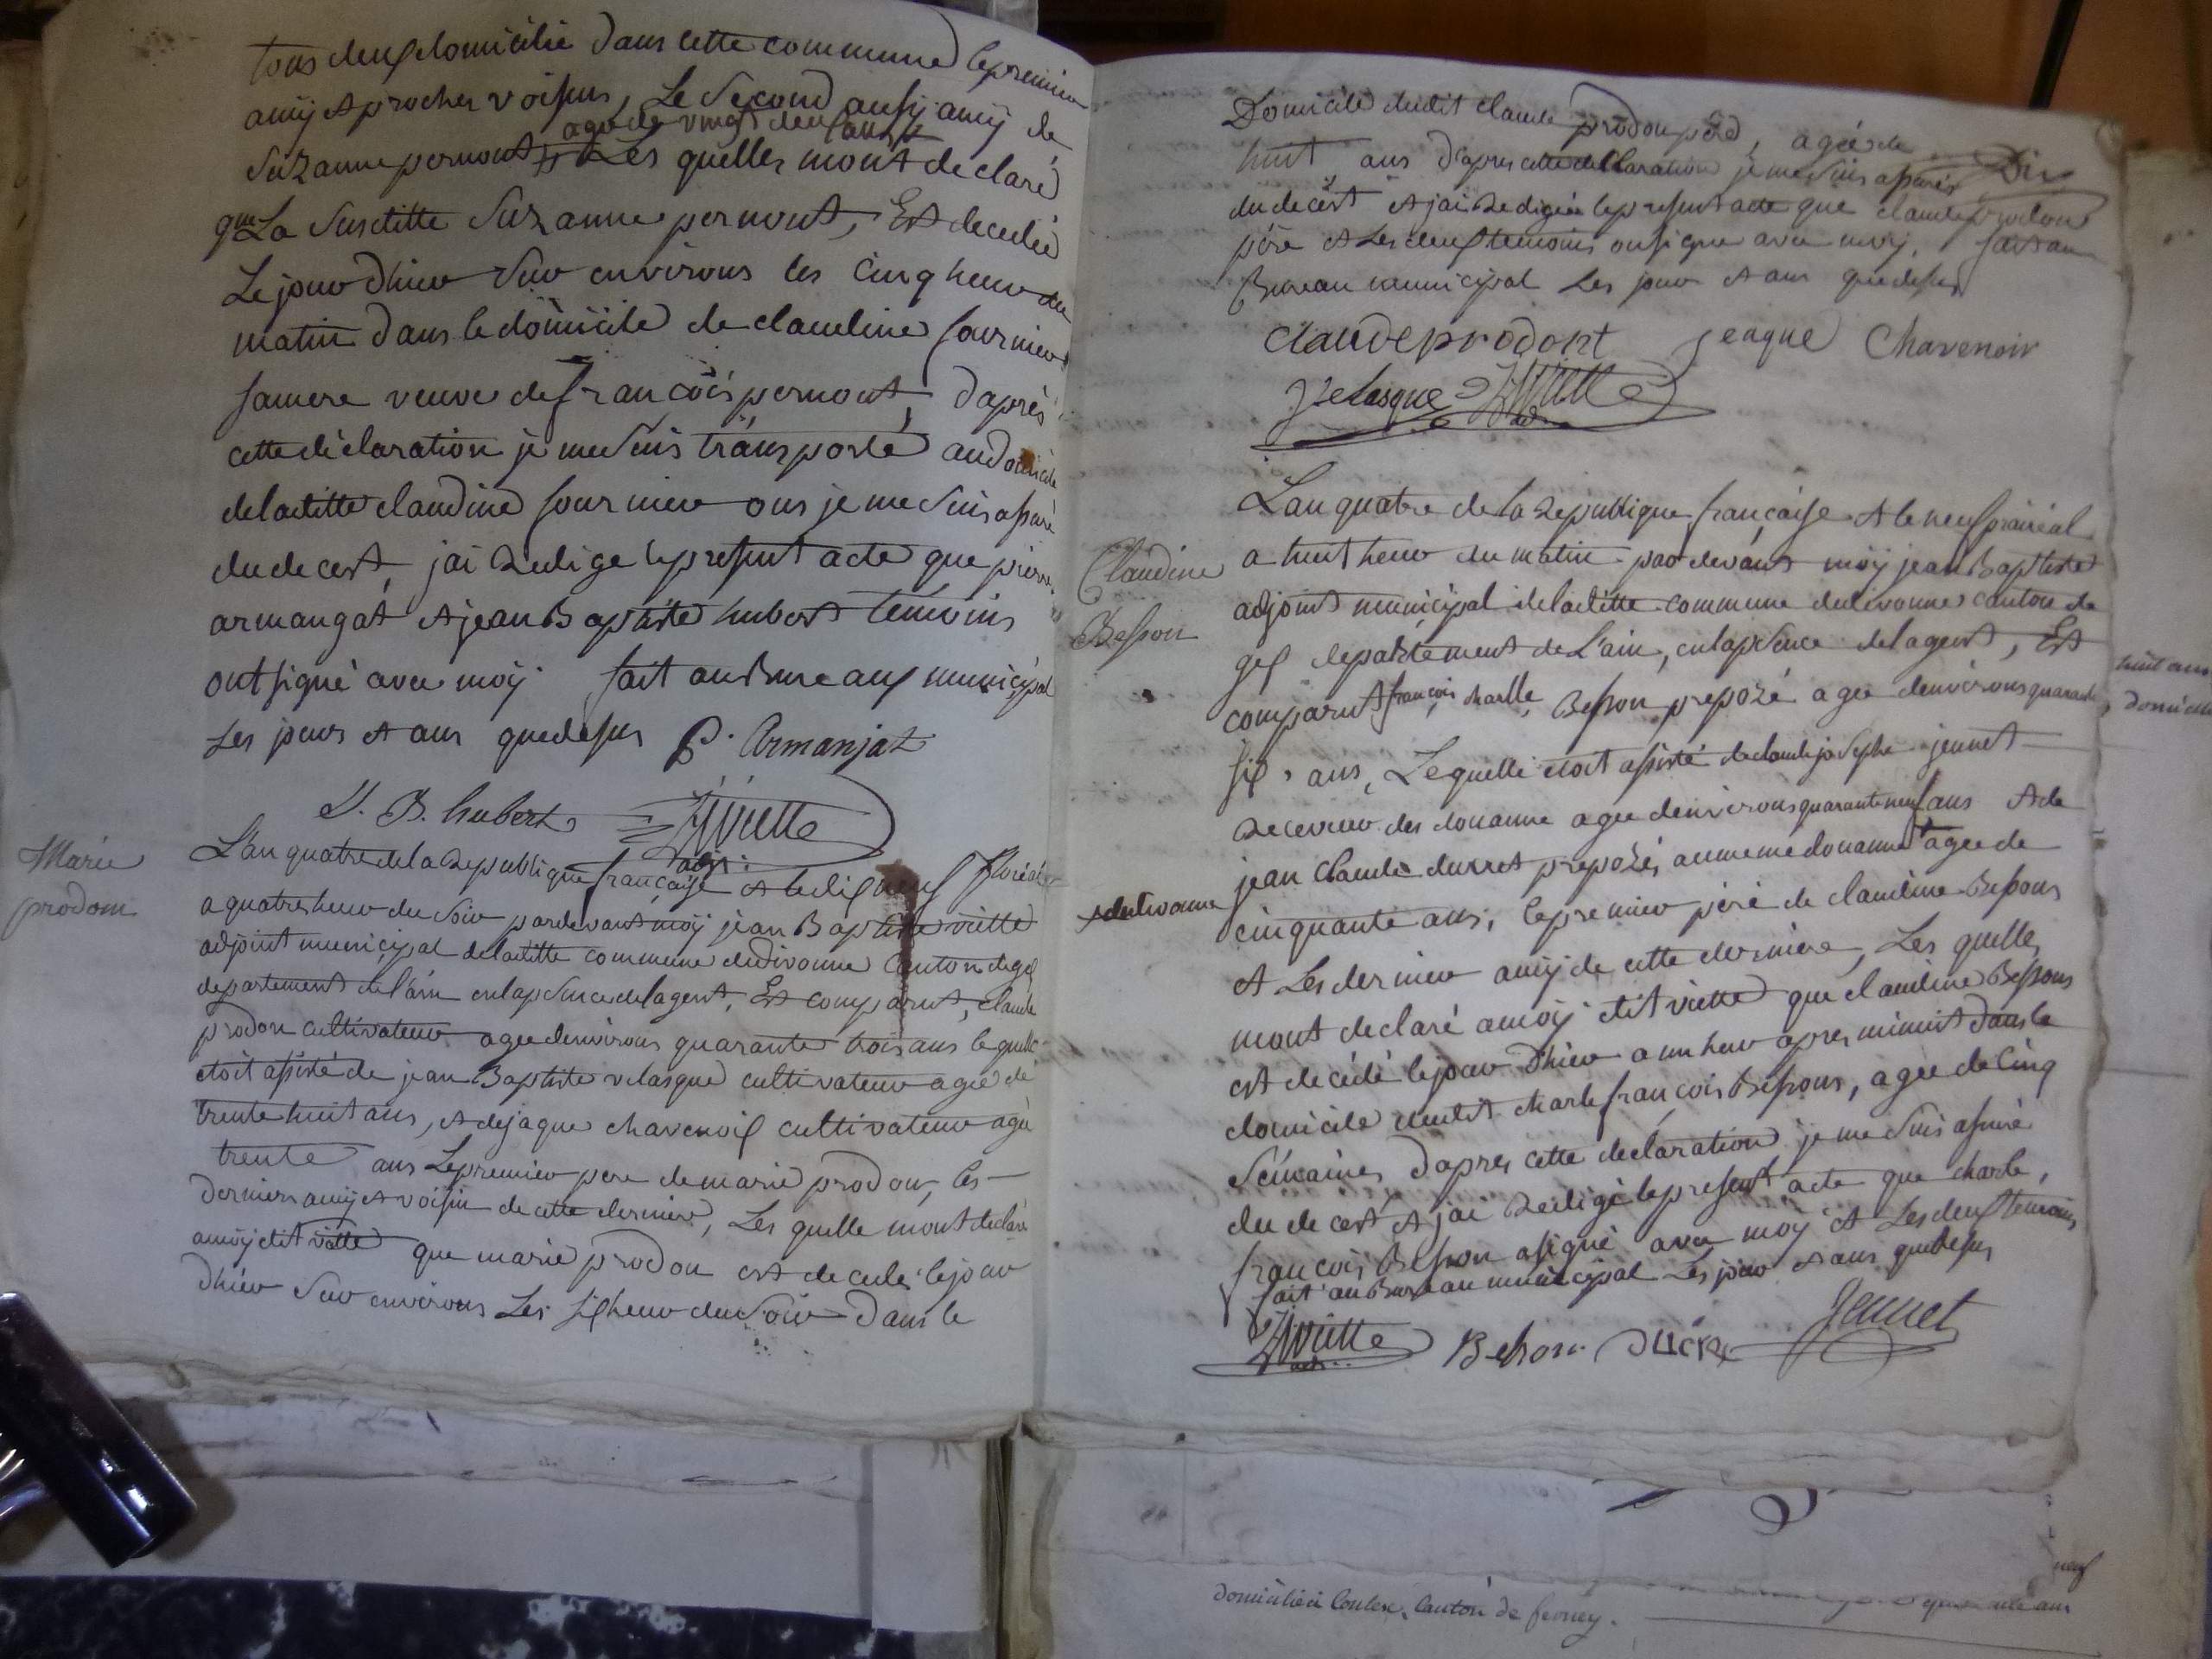 tous deux domicilié dans cette commune le premier
amij et proches voisins, Le Second ausij amij de
agée de vingt deux ans
Suzanne pernout, Les quelles m'ont declaré
que La Susditte Suzanne pernout, Est decedée
Le jour d'hier Sur environs les cinq heur du
matin dans le domicile de claudine fournier
sa mere veuve de françois pernout, d'après
cette déclaration je me suis transporté au domicile
de laditte claudine fournier ous je me suis assuré
du decest, j'ai Redigé le present acte que pierre
armangat et jean Baptiste hubert temoins
ont signé avec moij fait au Bureaux municipal
Les jours et ans que desus P. Armanjat
J. B. hubert JBviette
adj.
Marie
prodom
L'an quatre de la Republique française et le dix neuf floréal
a quatre heur du Soir par devant moij jean Baptiste viette
adjoint municipal de laditte commune de divonne Canton de gex
departement de l'ain en lapsence de lagent, Est comparut, claude
prodon cultivateur agee denvirons quarante trois ans le quelle
etoit assisté de jean Baptiste velasque cultivateur agée de
trente huit ans, et de jaque chavenoix cultivateur agée
trente ans Le premier pere de marie prodon, les
derniers amij et voisin de cette derniere, Les quelle m'ont declaré
a moij dit viette que marie prodon est decedé le jour
d'hier Sur environs Les six heur du Soir dans le
Domicile dudit claude prodon père, agée de Dix
huit ans d'apres cette declaration je me suis assuré
du decest et j'ai Redigée le present acte que claude prodon
père et Les deux temoins on signe avec moij, fait au
Bureau municipal Les jour et ans que desus
claude prodont jeaque Chavenoir
J Velasque JBviette
adj
Claudine
Besson
L'an quatre de la Republique française et le neuf prairéal
a huit heur du matin par devant moij jean Baptiste
adjoint municipal de laditte commune de divonne canton de
gex departement de L'ain, en lapsence de lagent, Est
comparut françois charle Besson prepozé agee denvirons quarante
six ans, Le quelle etoit assisté de claude josephe jennet
Receveur des douanne agee denvirons quarante neuf ans et de
jean Claude durret prepozé, au meme douanne agee de
de divonne
cinquante ans, le premier père de claudine Besson
et Les dernier amij de cette derniere, Les quelle,
mont declaré a moij dit viette que claudine Besson
est decédé le jour d'hier a un heur apres minuit dans le
domicile dudit charle françois Besson, agee de Cinq
Semaines d'apres cette declaration je me suis assuré
du decest et j'ai Redigé le present acte que charle,
françois Besson a signé avec moij et Les deux temoins,
fait au Bureau municipal Les jour et ans que desus
JBviette Besson Jennet
adj
huit ans
domicilié
neuf
domicilié à Conlex, Canton de ferney.